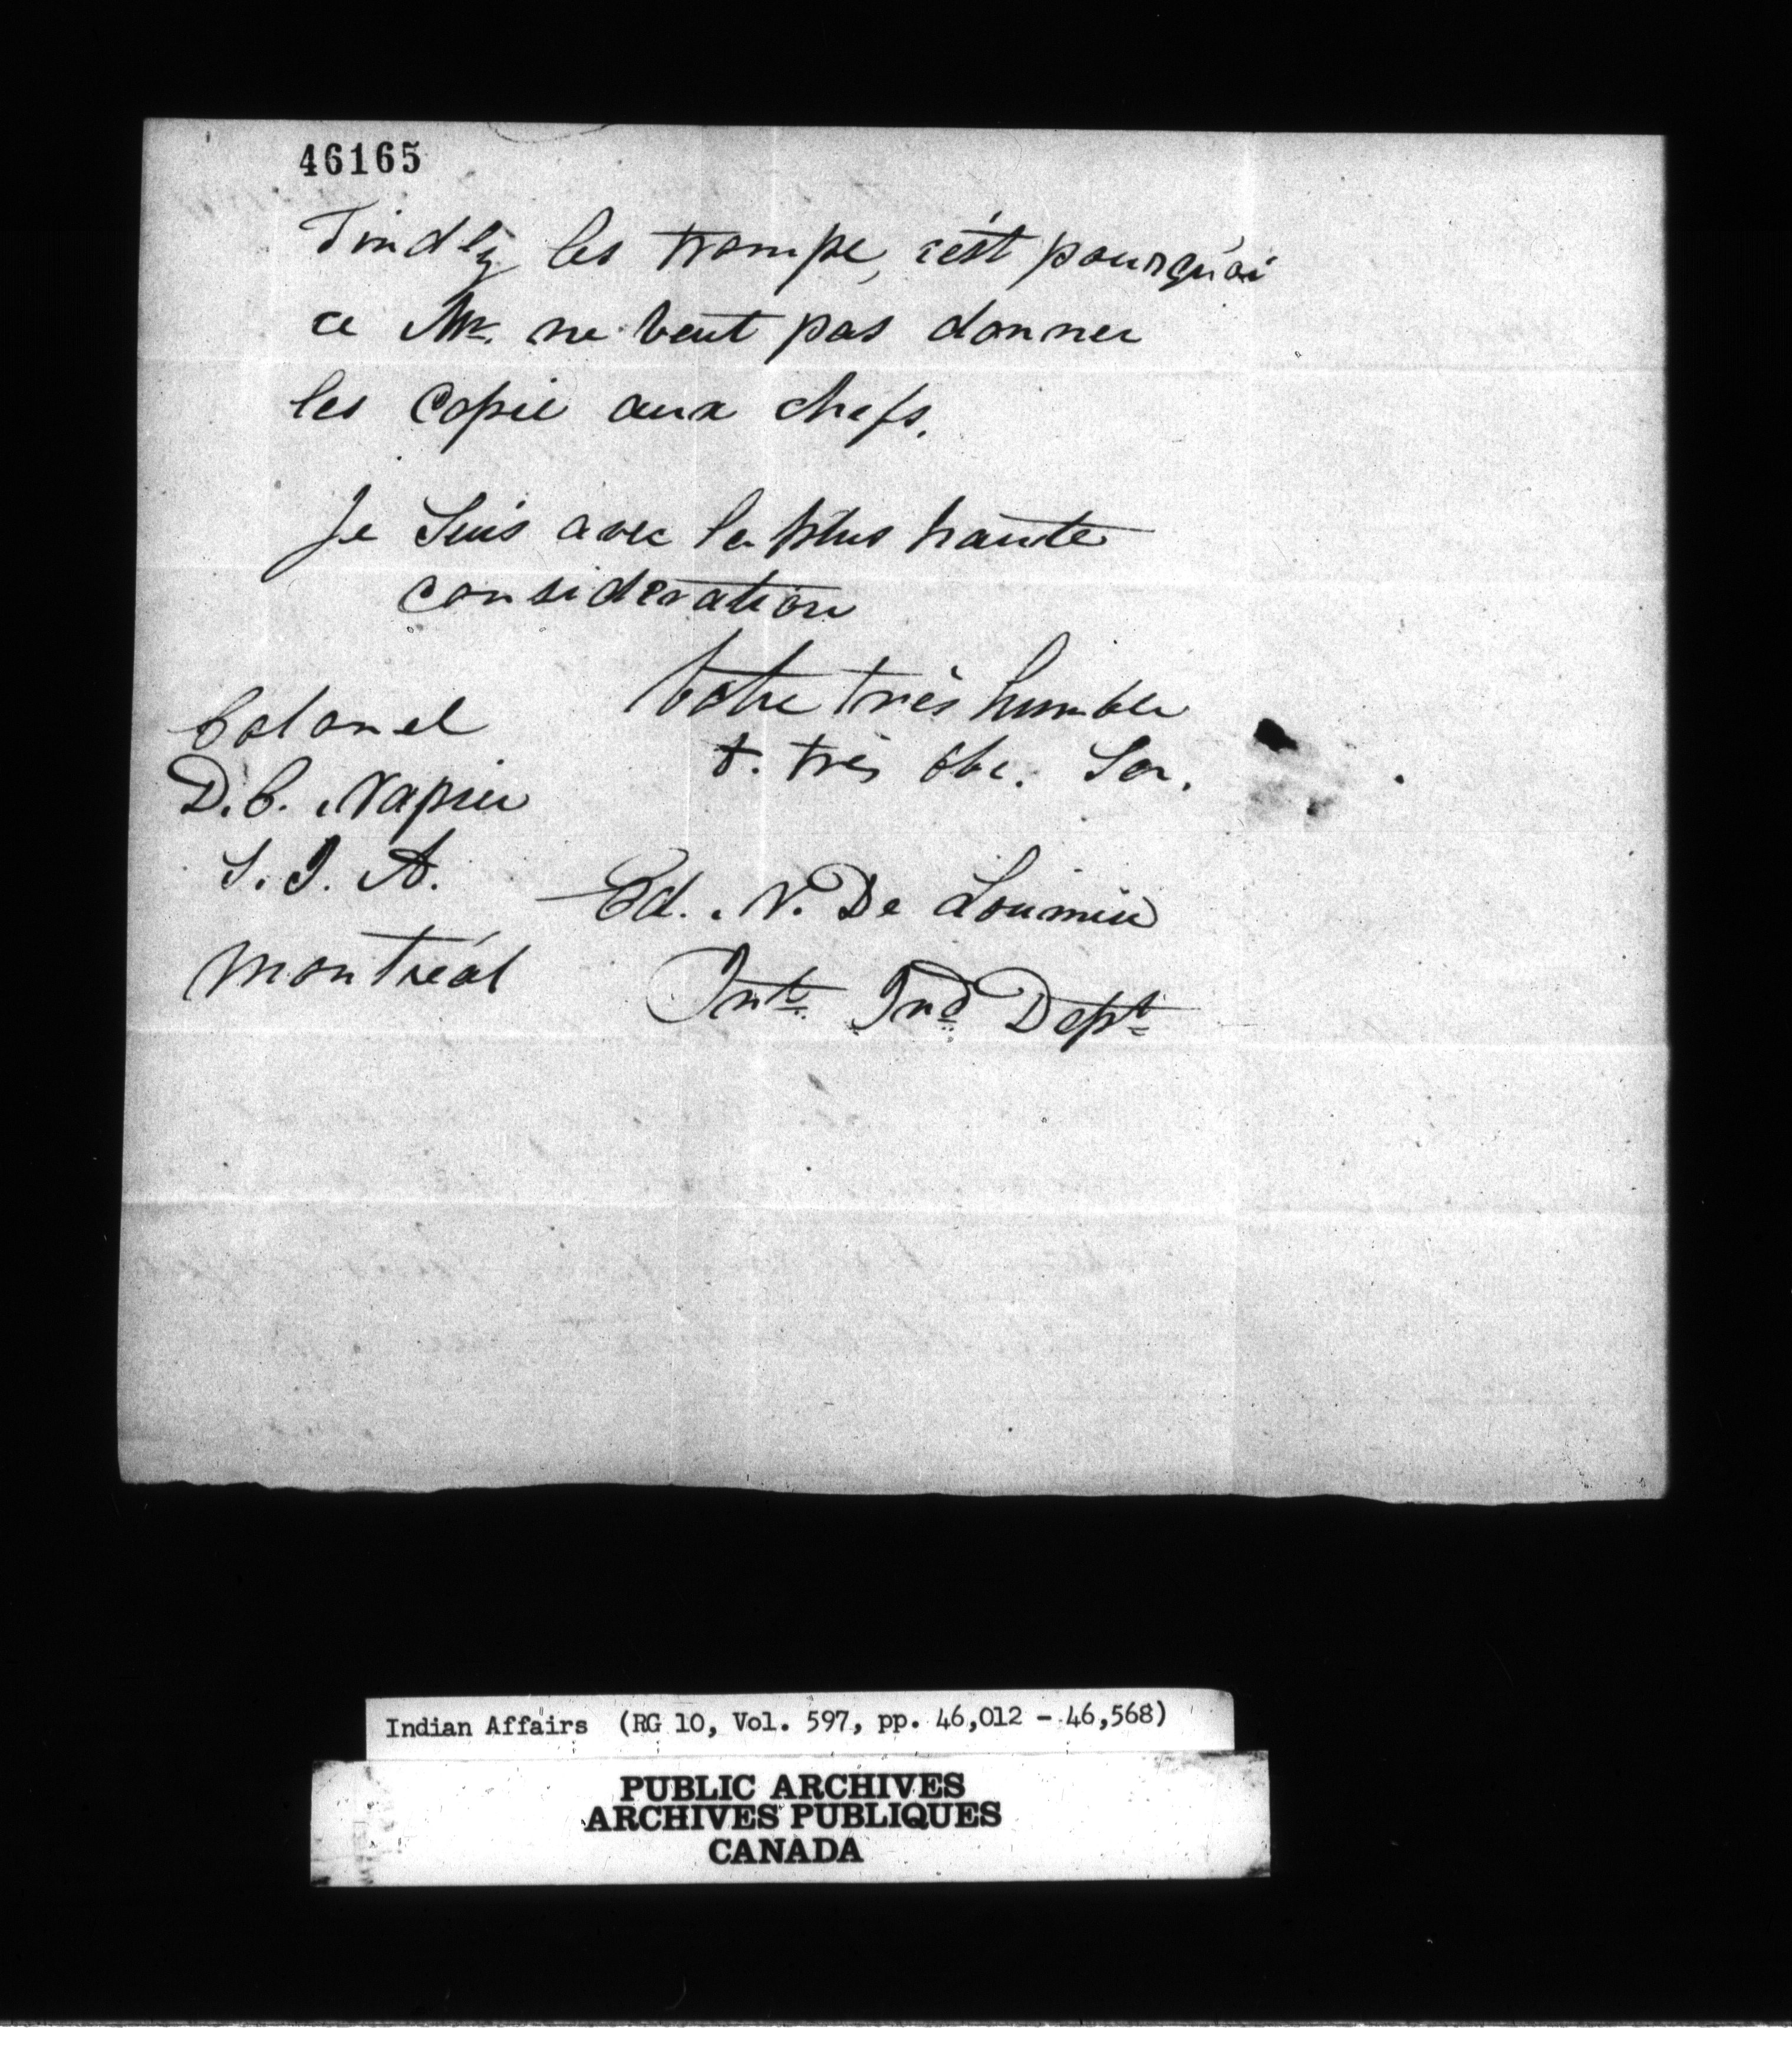 46165
Findlʒ les trompe, c'est pourquoi
ce Mr. ne veut pas donner
les Copie aux chefs.
Je Suis avec la plus haute
consideration
Votre très humble
& très obe. Ser.
Colonel
D. C. Napier
S. I. A.
Montréal
Ed. N. De Lorimier
Int. Ind Dept
Indian Affairs (RG 10, Vol. 597, pp. 46,012 - 46,568)
PUBLIC ARCHIVES
ARCHIVES PUBLIQUES
CANADA